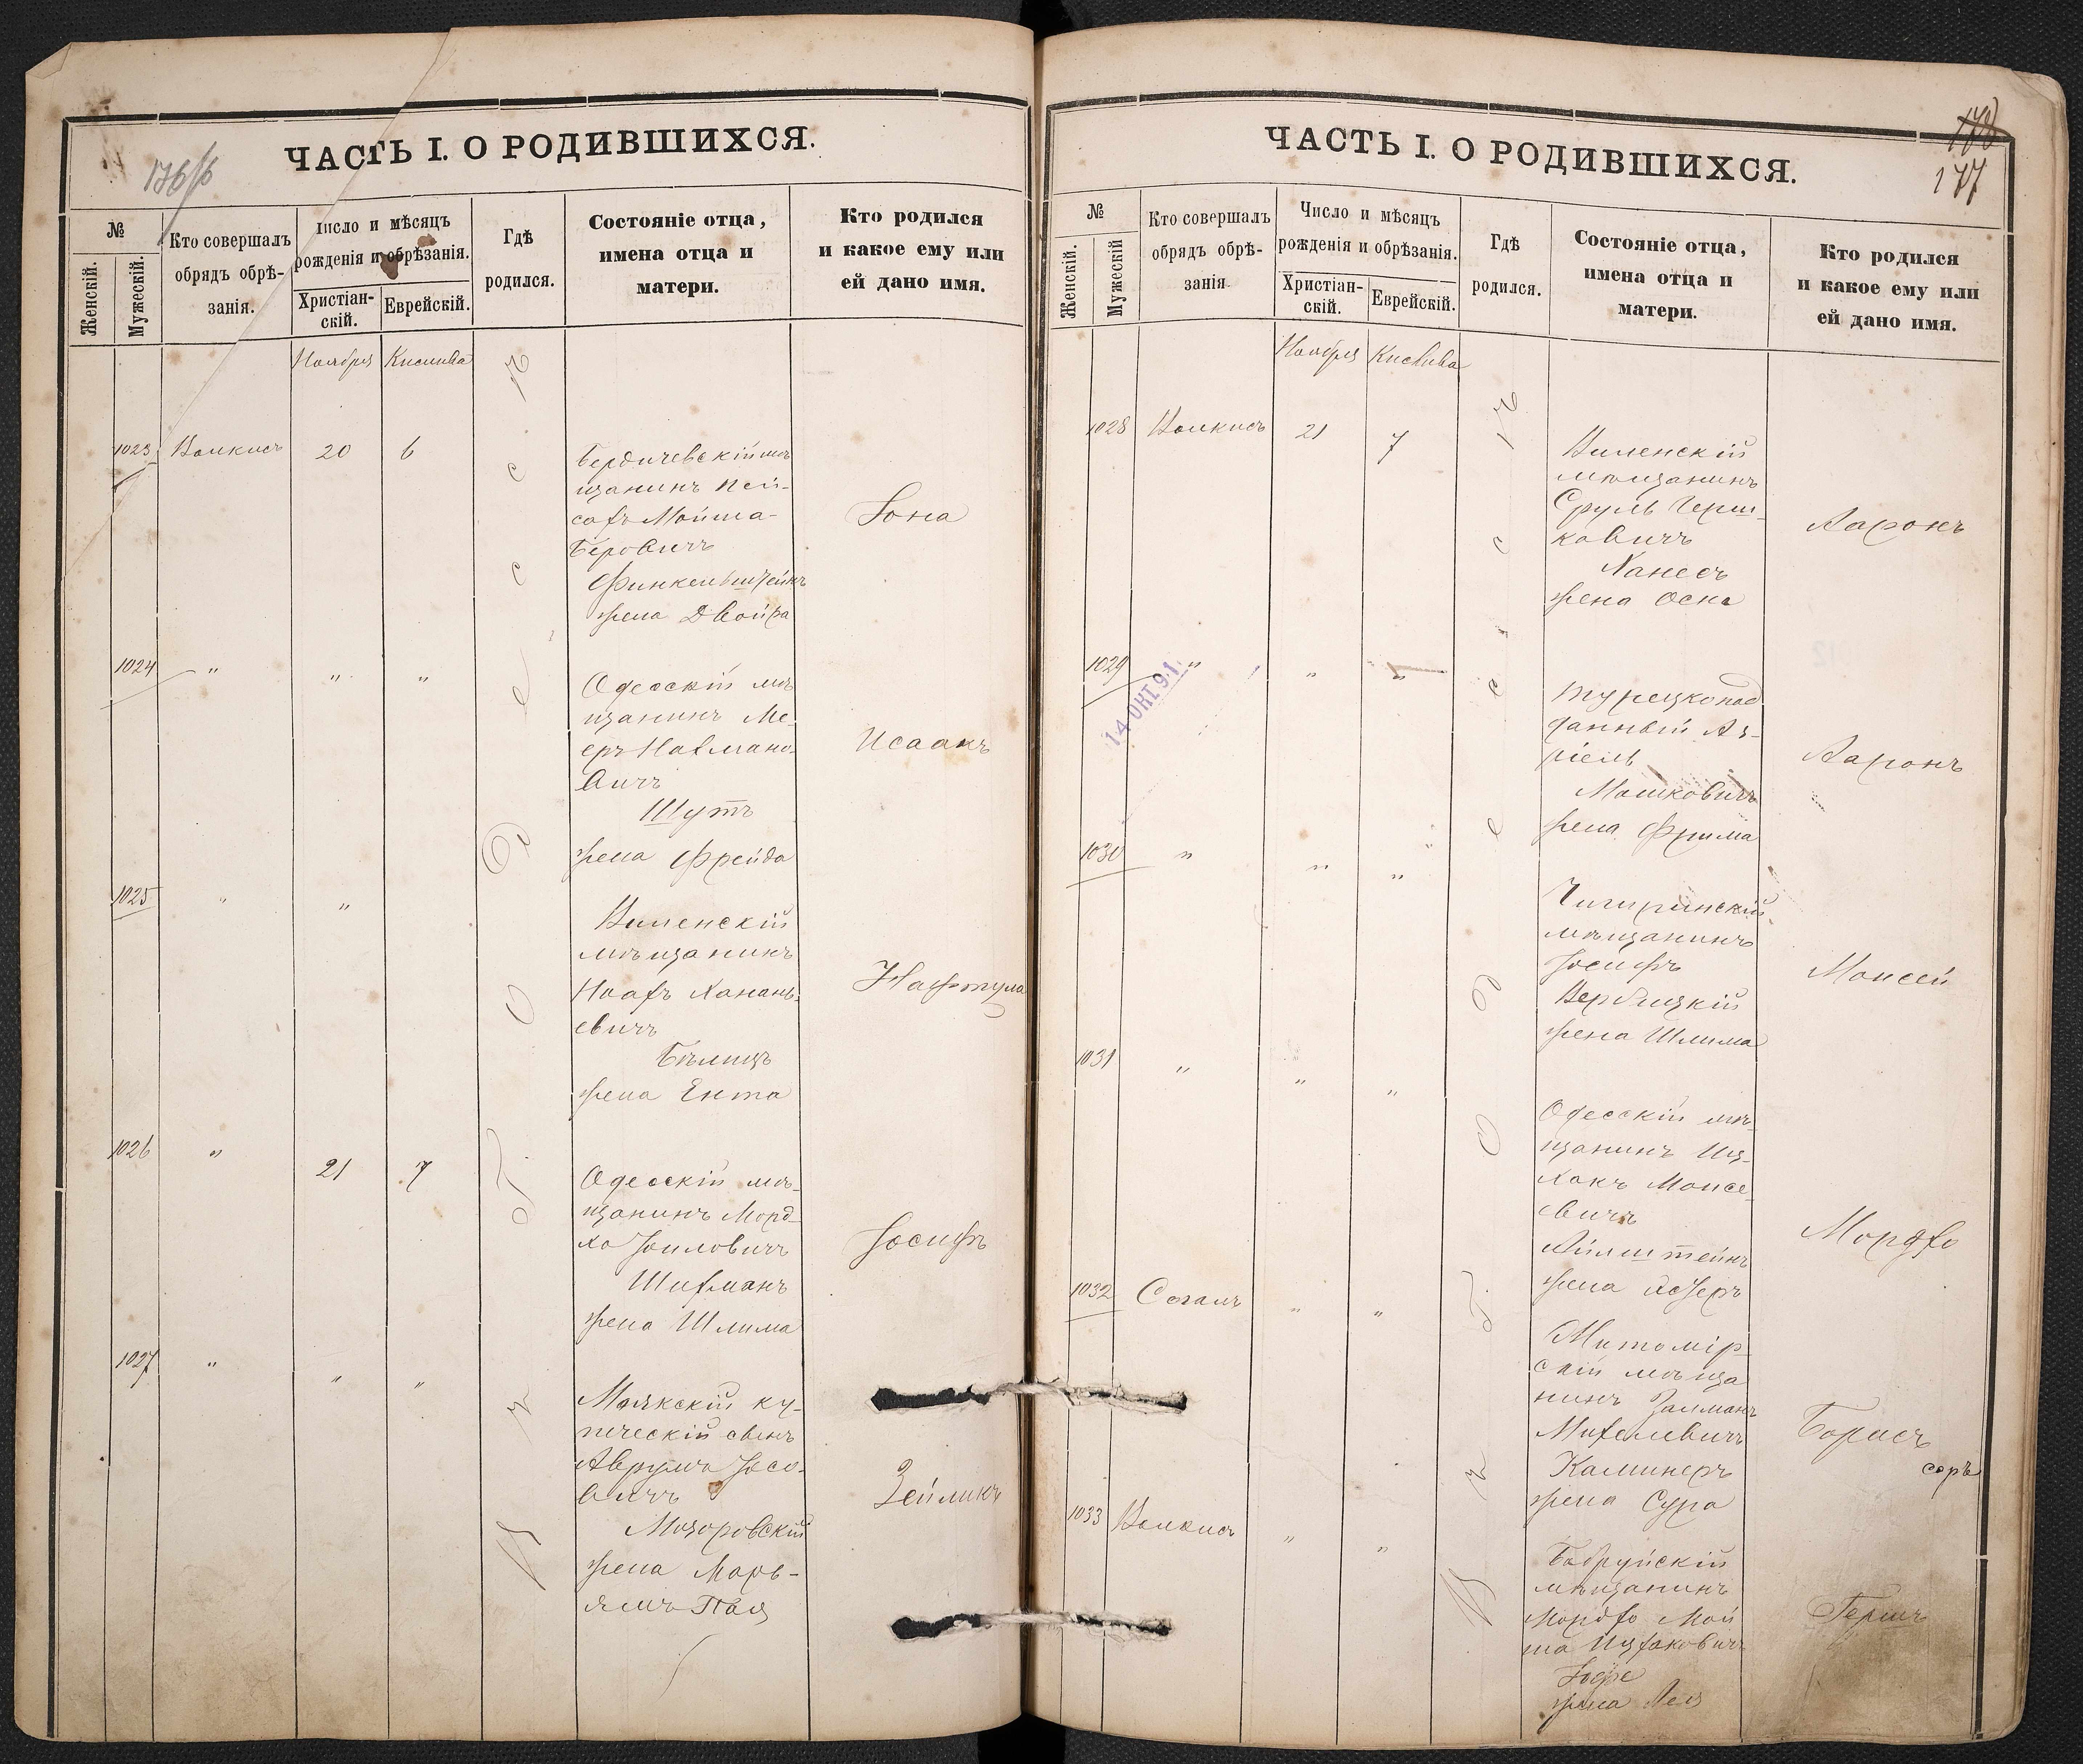 ЧАСТЬ I. О РОДИВШИХСЯ.
№
Женскій.
Мужескій.
Кто совершалъ
обрядъ обрѣ-
занія.
Число и мѣсяцъ
рожденія и обрѣзанія.
Христіан-
скій.
Еврейскій.
Гдѣ
родился.
Состояніе отца,
имена отца и
матери.
Кто родился
и какое ему или
ей дано имя.
Ноября Кислива
Въ г. Одессѣ
1023 Волкисъ 20 6
Бердичевскій мѣ
щанинъ Пей-
сахъ Мойша-
Беровичъ
Финкельштейнъ
жена Двойра
Іона
1024 " " "
Одесскій мѣ
щанинъ Ме-
еръ Нахмано-
вичъ
Шутъ
жена Фрейда
Исаакъ
1025 " "
Виленскій
мѣщанинъ
Ноахъ Ханань-
евичъ
Бѣлицъ
жена Ента
Нафтула
1026 " 21 7
Одесскій мѣ-
щанинъ Морд-
ко Іоиловичъ
Шифманъ
жена Шлима
Іосифъ
1027 " " "
Маякскій ку-
печескій сынъ
Аврумъ Іосо-
вичъ
Мозоровскій
жена Марь-
ямъ Пая
Зейликъ
ЧАСТЬ I. О РОДИВШИХСЯ.
177
№
Женскій.
Мужескій
Кто совершалъ
обрядъ обрѣ-
занія
Число и мѣсяцъ
рожденія и обрѣзанія.
Христіан-
скій.
Еврейскій.
Гдѣ
родился.
Состояніе отца,
имена отца и
матери.
Кто родился
и какое ему или
ей дано имя.
Ноября Кислива
Въ г. Одессѣ
1028 Волкисъ 21 7
Виленскій
мѣщанинъ
Сруль Герш-
ковичъ
Ханесъ
жена Осна
Ааронъ
1029 " " "
14 ОКТ. 91
Турецкопод
данный Аз-
ріель
Мошковичъ
жена Фрима
Ааронъ
1030 " " "
Чигиринскій
мѣщанинъ
Іосифъ
Вербицкій
жена Шлима
Моисей
1031 " " "
Одесскій мѣ-
щанинъ Иц-
хакъ Моисе-
евичъ
жена Эстеръ
Мордхо
1032 Сегалъ " "
Житомір
скій мѣща
нинъ Залманъ
Михелевичъ
Каминеръ
жена Сура
Борисъ
1033 Волкисъ " "
Бобруйскій
мѣщанинъ
Мордхо Мой
ша Ицхаковичъ
Іофе
жена Лея
Гершъ